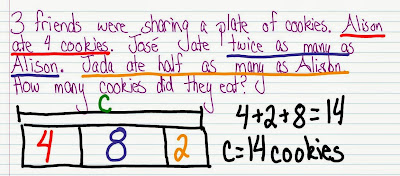 3 friends were sharing a plate of cookies. Alison
ate 4 cookies. Jose Jate twice as many as
Alison. Jada ate half as many as Alison.
How many cookies did they eat?
C
4 8 2
4+2+8=14
C=14 cookies